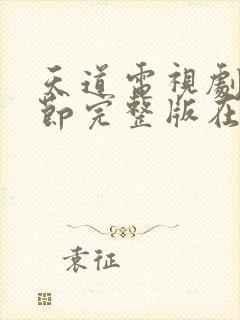 天道電視劇
節完整版在
袁征